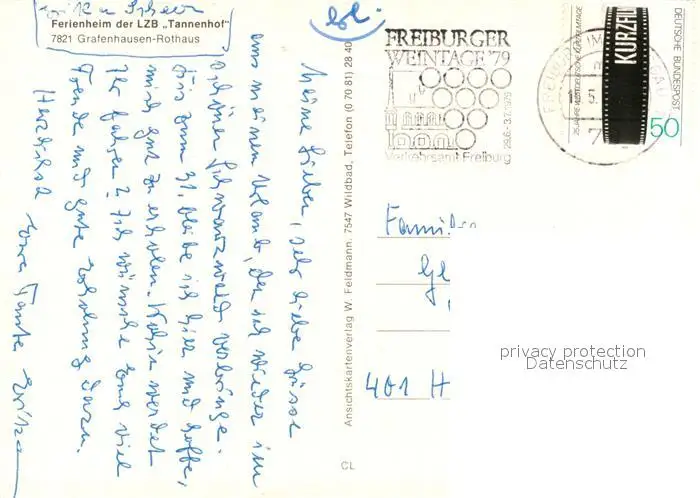 Ferienheim der LZB „Tannenhof"
7821 Grafenhausen-Rothaus
Meine Lieben, sehr liebe Grüsse
aus meinem Urlaub, den ich wieder im
schönen Schwarzwald verbringe.
Bis zum 31. bleibe ich hier und hoffe,
mich gut zu erholen. Wohin werdet
Ihr fahren? Ich wünsche Euch viel
Freude und gute Erholung dazu.
Herzlichst
Eure Tante Erika
Ansichtskartenverlag W. Feldmann, 7547 Wildbad, Telefon (0 70 81) 28 40
CL
FREIBURGER
WEINTAGE '79
29.6.-3.7.1979
Verkehrsamt Freiburg
25 JAHRE WESTDEUTSCHE KURZFILMTAGE
KURZFILM
DEUTSCHE BUNDESPOST
50
Familie
401 H
privacy protection
Datenschutz